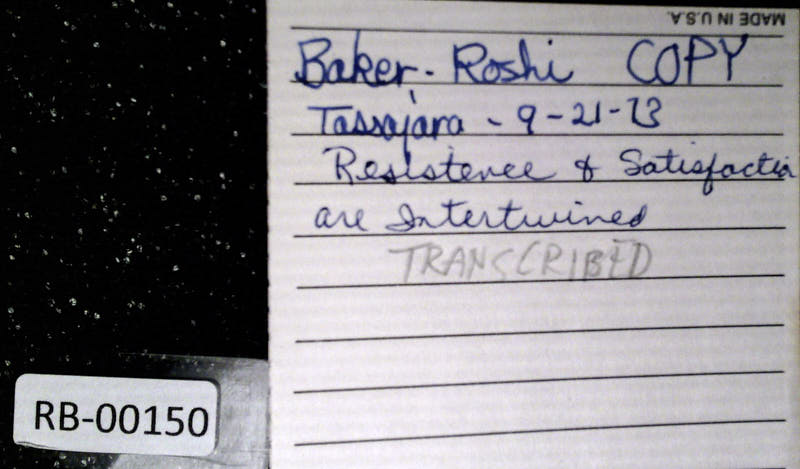 MADE IN U.S.A.
Baker-Roshi COPY
Tassajara - 9-21-73
Resistence & Satisfaction
are Intertwined
TRANSCRIBED
RB-00150